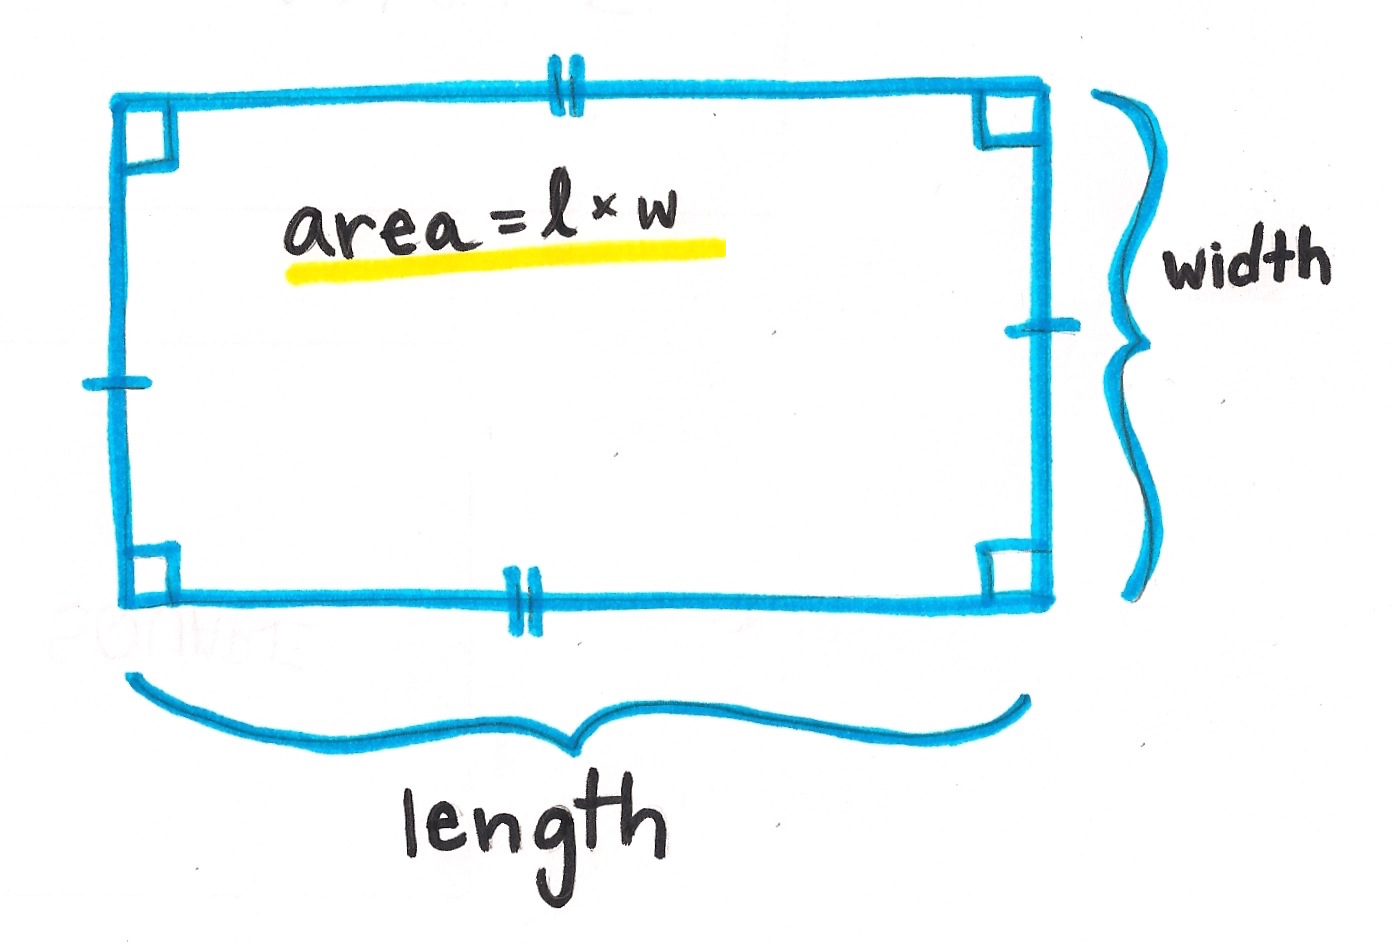 area = l × w
width
length